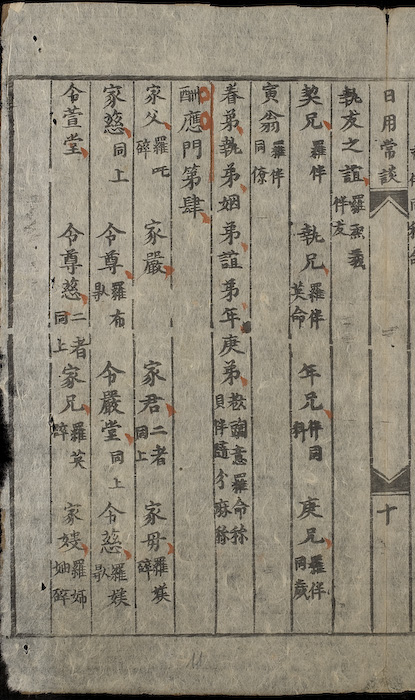 日用常談 十
執友之誼 羅義伴友
契兄 羅伴 執兄 羅伴英命 年兄 伴同科 庚兄 羅伴同歲
寅翁 羅伴同僚
眷弟執弟姻弟誼弟年庚弟 意羅命称貝伴隨分麻称
酬應門第肆
家父 羅吒碎 家嚴 家君 二者同上 家母 羅媄碎
家慈 同上 令尊 羅布㝵 令嚴堂 同上 令慈 羅媄㝵
令萱堂 令尊慈 二者同上 家兄 羅英碎 家嫂 羅姉妯碎